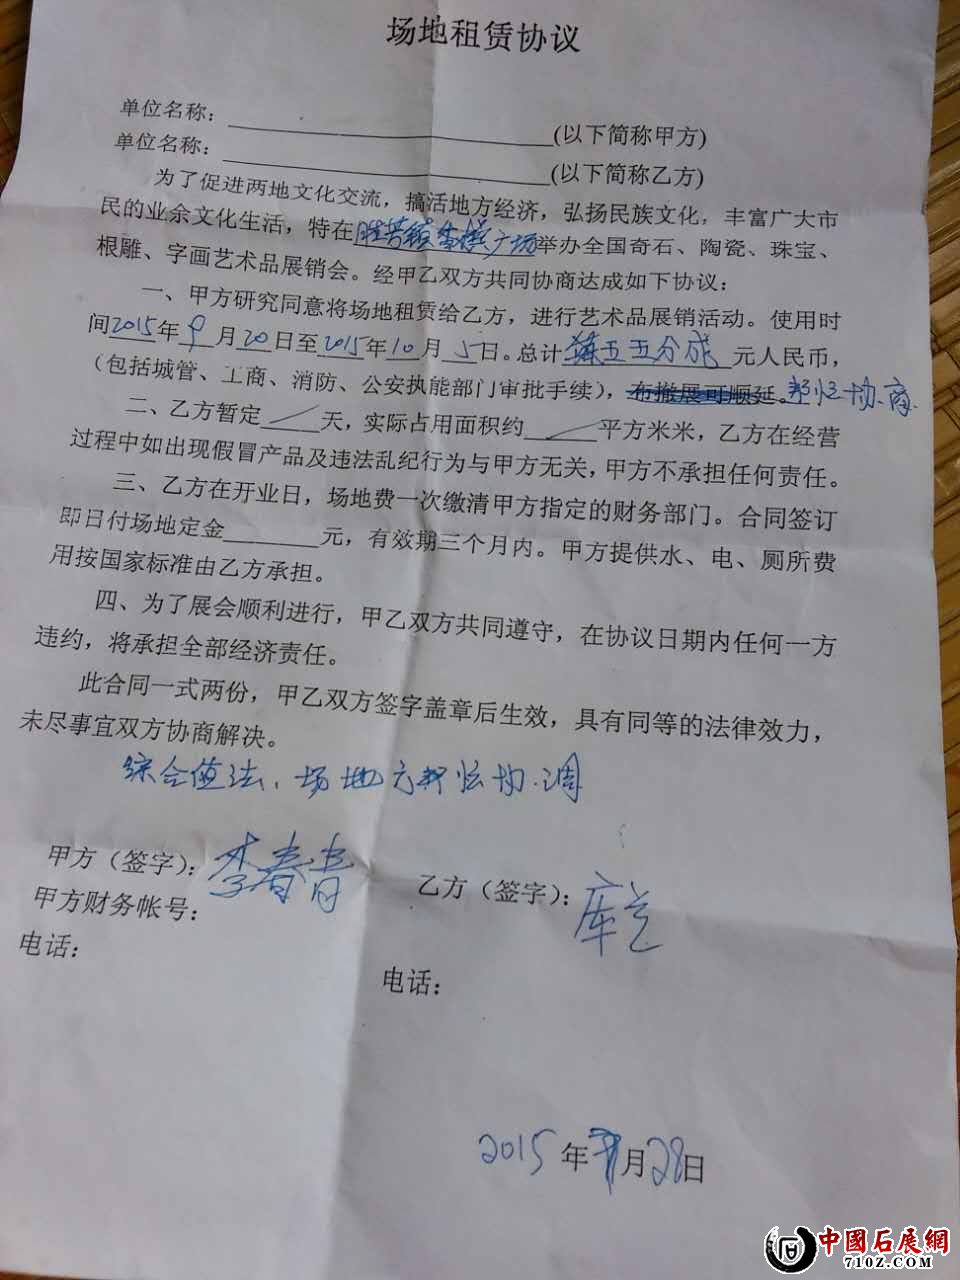 场地租赁协议
单位名称：(以下简称甲方)
单位名称：(以下简称乙方)
为了促进两地文化交流，搞活地方经济，弘扬民族文化，丰富广大市
民的业余文化生活，特在胜芳镇广场举办全国奇石、陶瓷、珠宝、
根雕、字画艺术品展销会。经甲乙双方共同协商达成如下协议：
一、甲方研究同意将场地租赁给乙方，进行艺术品展销活动。使用时
间2015年9月20日至2015年10月5日。总计五五分成元人民币，
（包括城管、工商、消防、公安执能部门审批手续），布撤展可顺延。协商
二、乙方暂定天，实际占用面积约平方米米，乙方在经营
过程中如出现假冒产品及违法乱纪行为与甲方无关，甲方不承担任何责任。
三、乙方在开业日，场地费一次缴清甲方指定的财务部门。合同签订
即日付场地定金元，有效期三个月内。甲方提供水、电、厕所费
用按国家标准由乙方承担。
四、为了展会顺利进行，甲乙双方共同遵守，在协议日期内任何一方
违约，将承担全部经济责任。
此合同一式两份，甲乙双方签字盖章后生效，具有同等的法律效力，
未尽事宜双方协商解决。
综合值法、场地方协调
甲方（签字）：李春青
乙方（签字）：库兰
甲方财务帐号：
电话：
电话：
2015年月28日
中國石展網
7102.COM